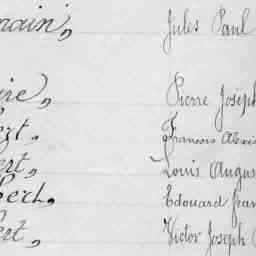 main, Jules Paul
rie, Pierre Joseph
ert, François Alexis
ert, Louis Augus
bert, Edouard Fran
ert, Victor Joseph